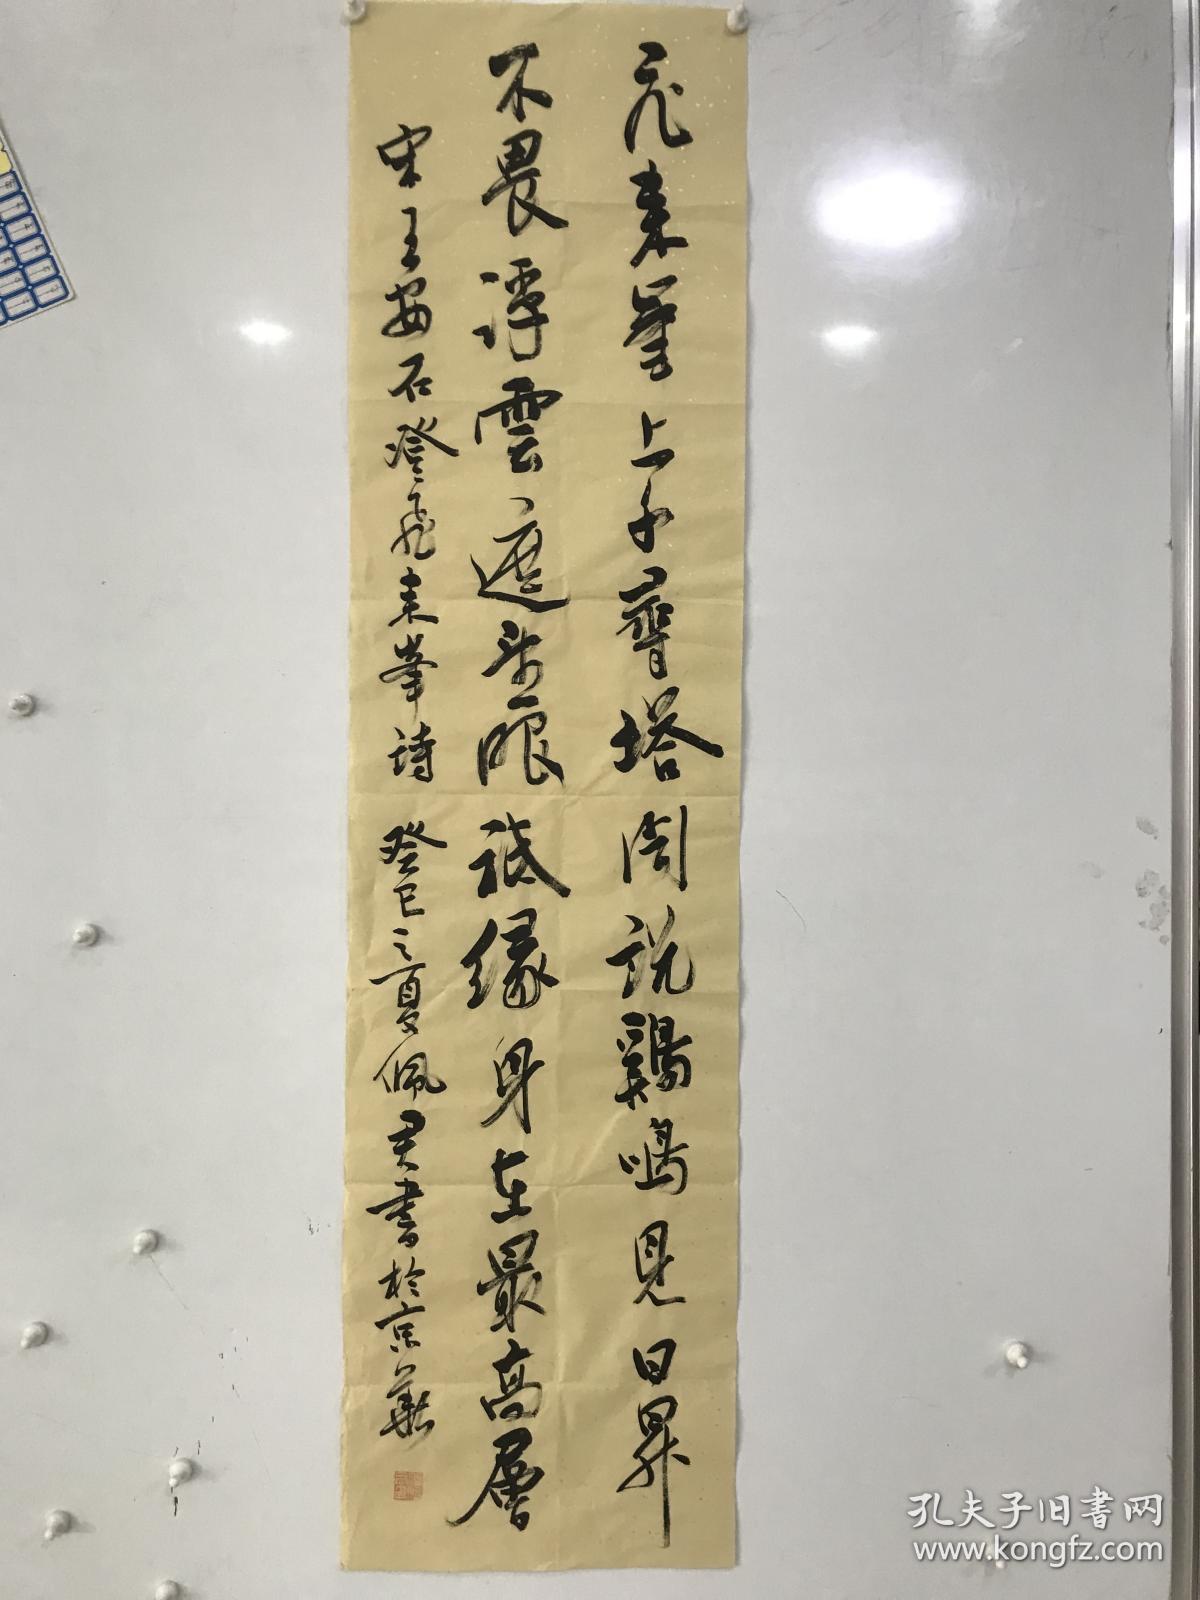 飛來峯上千尋塔聞説鷄鳴見日昇
不畏浮雲遮望眼祇緣身在最高層
宋王安石登飛來峯詩 癸巳之夏佩君書於京華
孔夫子旧书网
www.kongfz.com